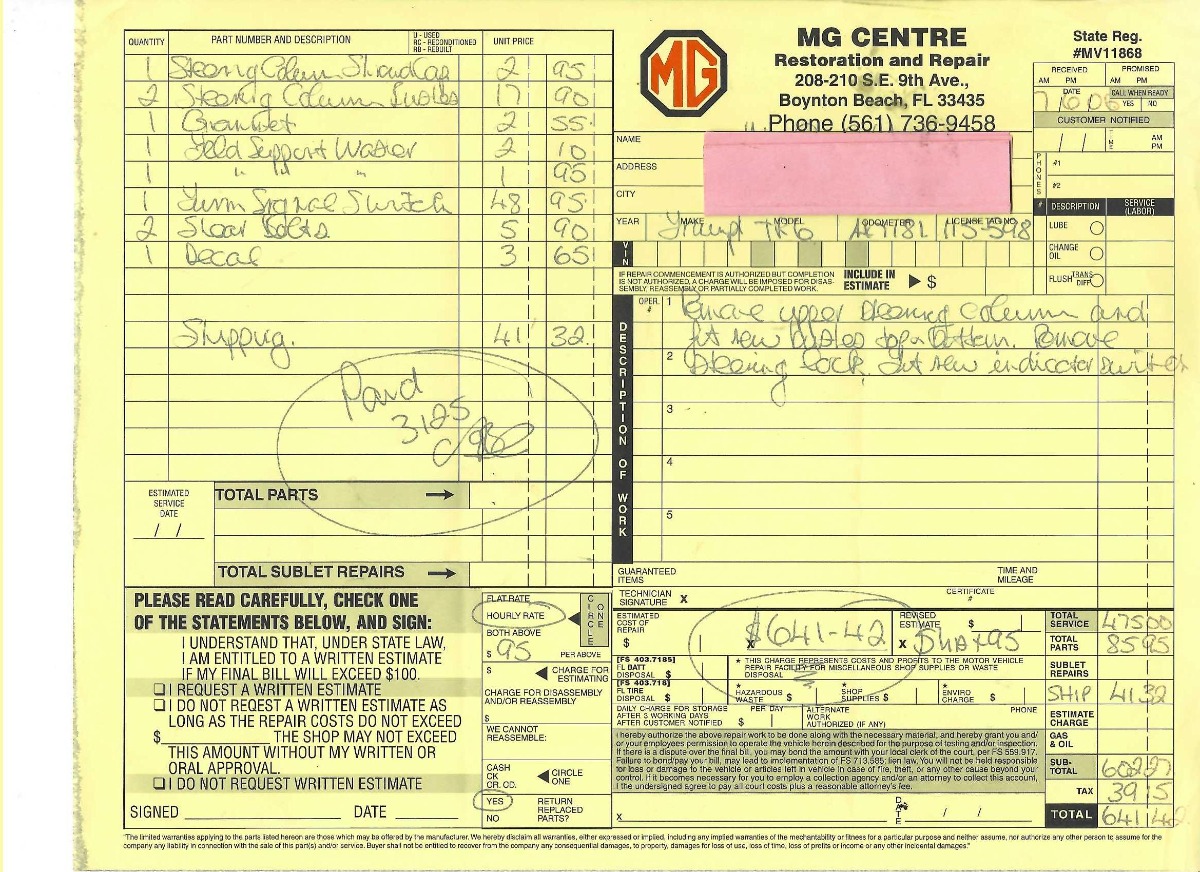 QUANTITY PART NUMBER AND DESCRIPTION U - USED RC - RECONDITIONED RB - REBUILT UNIT PRICE
1 Steering Column Shroud Cap 2 95
2 Steering Column Bushes 17 90
1 Grommet 2 55
1 Felld Support Washer 2 10
1 " " " 1 95
1 Turn Signal Switch 48 95
2 Shear Bolts 5 90
1 Decal 3 65
Shipping. 41 32
Paid
3125
TOTAL PARTS
ESTIMATED SERVICE DATE
/ /
TOTAL SUBLET REPAIRS
PLEASE READ CAREFULLY, CHECK ONE
OF THE STATEMENTS BELOW, AND SIGN:
I UNDERSTAND THAT, UNDER STATE LAW,
I AM ENTITLED TO A WRITTEN ESTIMATE
IF MY FINAL BILL WILL EXCEED $100.
I REQUEST A WRITTEN ESTIMATE
I DO NOT REQEST A WRITTEN ESTIMATE AS
LONG AS THE REPAIR COSTS DO NOT EXCEED
$ THE SHOP MAY NOT EXCEED
THIS AMOUNT WITHOUT MY WRITTEN OR
ORAL APPROVAL.
I DO NOT REQUEST WRITTEN ESTIMATE
SIGNED DATE
FLAT RATE
HOURLY RATE
BOTH ABOVE
CIRCLE ONE
$ 95 PER ABOVE
$ CHARGE FOR ESTIMATING
CHARGE FOR DISASSEMBLY AND/OR REASSEMBLY
$
WE CANNOT REASSEMBLE:
CASH
CK
CR. CD.
CIRCLE ONE
YES
NO
RETURN REPLACED PARTS?
MG
MG CENTRE
Restoration and Repair
208-210 S.E. 9th Ave.,
Boynton Beach, FL 33435
Phone (561) 736-9458
State Reg.
#MV11868
RECEIVED PROMISED
AM PM AM PM
DATE CALL WHEN READY
7 6 06 YES NO
CUSTOMER NOTIFIED
/ / TIME AM PM
PHONES
#1
#2
NAME
ADDRESS
CITY
YEAR MAKE MODEL ODOMETER LICENSE TAG NO.
Triumph TR6
VIN
# DESCRIPTION SERVICE (LABOR)
LUBE
CHANGE OIL
FLUSH TRANS DIFF
IF REPAIR COMMENCEMENT IS AUTHORIZED BUT COMPLETION
IS NOT AUTHORIZED, A CHARGE WILL BE IMPOSED FOR DISAS-
SEMBLY, REASSEMBLY OR PARTIALLY COMPLETED WORK.
INCLUDE IN ESTIMATE $
DESCRIPTION OF WORK
OPER. #
1 Remove upper steering column and
fit new bushes top & bottom. Remove
2 Steering lock. fit new indicator switch
3
4
5
GUARANTEED ITEMS TIME AND MILEAGE
TECHNICIAN SIGNATURE X CERTIFICATE #
ESTIMATED COST OF REPAIR $
X $641-42
REVISED ESTIMATE $
X
[FS 403.7185] FL BATT DISPOSAL $
* THIS CHARGE REPRESENTS COSTS AND PROFITS TO THE MOTOR VEHICLE
REPAIR FACILITY FOR MISCELLANEOUS SHOP SUPPLIES OR WASTE
DISPOSAL
[FS 403.718] FL TIRE DISPOSAL $
* HAZARDOUS WASTE $ * SHOP SUPPLIES $ * ENVIRO CHARGE $
DAILY CHARGE FOR STORAGE
AFTER 3 WORKING DAYS
AFTER CUSTOMER NOTIFIED
PER DAY $
ALTERNATE WORK AUTHORIZED (IF ANY) PHONE
I hereby authorize the above repair work to be done along with the necessary material, and hereby grant you and/
or your employees permission to operate the vehicle herein described for the purpose of testing and/or inspection.
If there is a dispute over the final bill, you may bond the amount with your local clerk of the court, per FS 559.917.
Failure to bond/pay your bill, may lead to implementation of FS 713.585; lien law. You will not be held responsible
for loss or damage to the vehicle or articles left in vehicle in case of fire, theft, or any other cause beyond your
control. If it becomes necessary for you to employ a collection agency and/or an attorney to collect this account,
I the undersigned agree to pay all court costs plus a reasonable attorney's fee.
X DATE / /
TOTAL SERVICE 475 00
TOTAL PARTS 85 95
SUBLET REPAIRS
SHIP 41 32
ESTIMATE CHARGE
GAS & OIL
SUB-TOTAL 602 27
TAX 39 15
TOTAL 641 42
"The limited warranties applying to the parts listed hereon are those which may be offered by the manufacturer. We hereby disclaim all warranties, either expressed or implied, including any implied warranties of the mechantability or fitness for a particular purpose and neither assume, nor authorize any other person to assume for the
company any liability in connection with the sale of this part(s) and/or service. Buyer shall not be entitled to recover from the company any consequential damages, to property, damages for loss of use, loss of time, loss of profits or income or any other incidental damages."